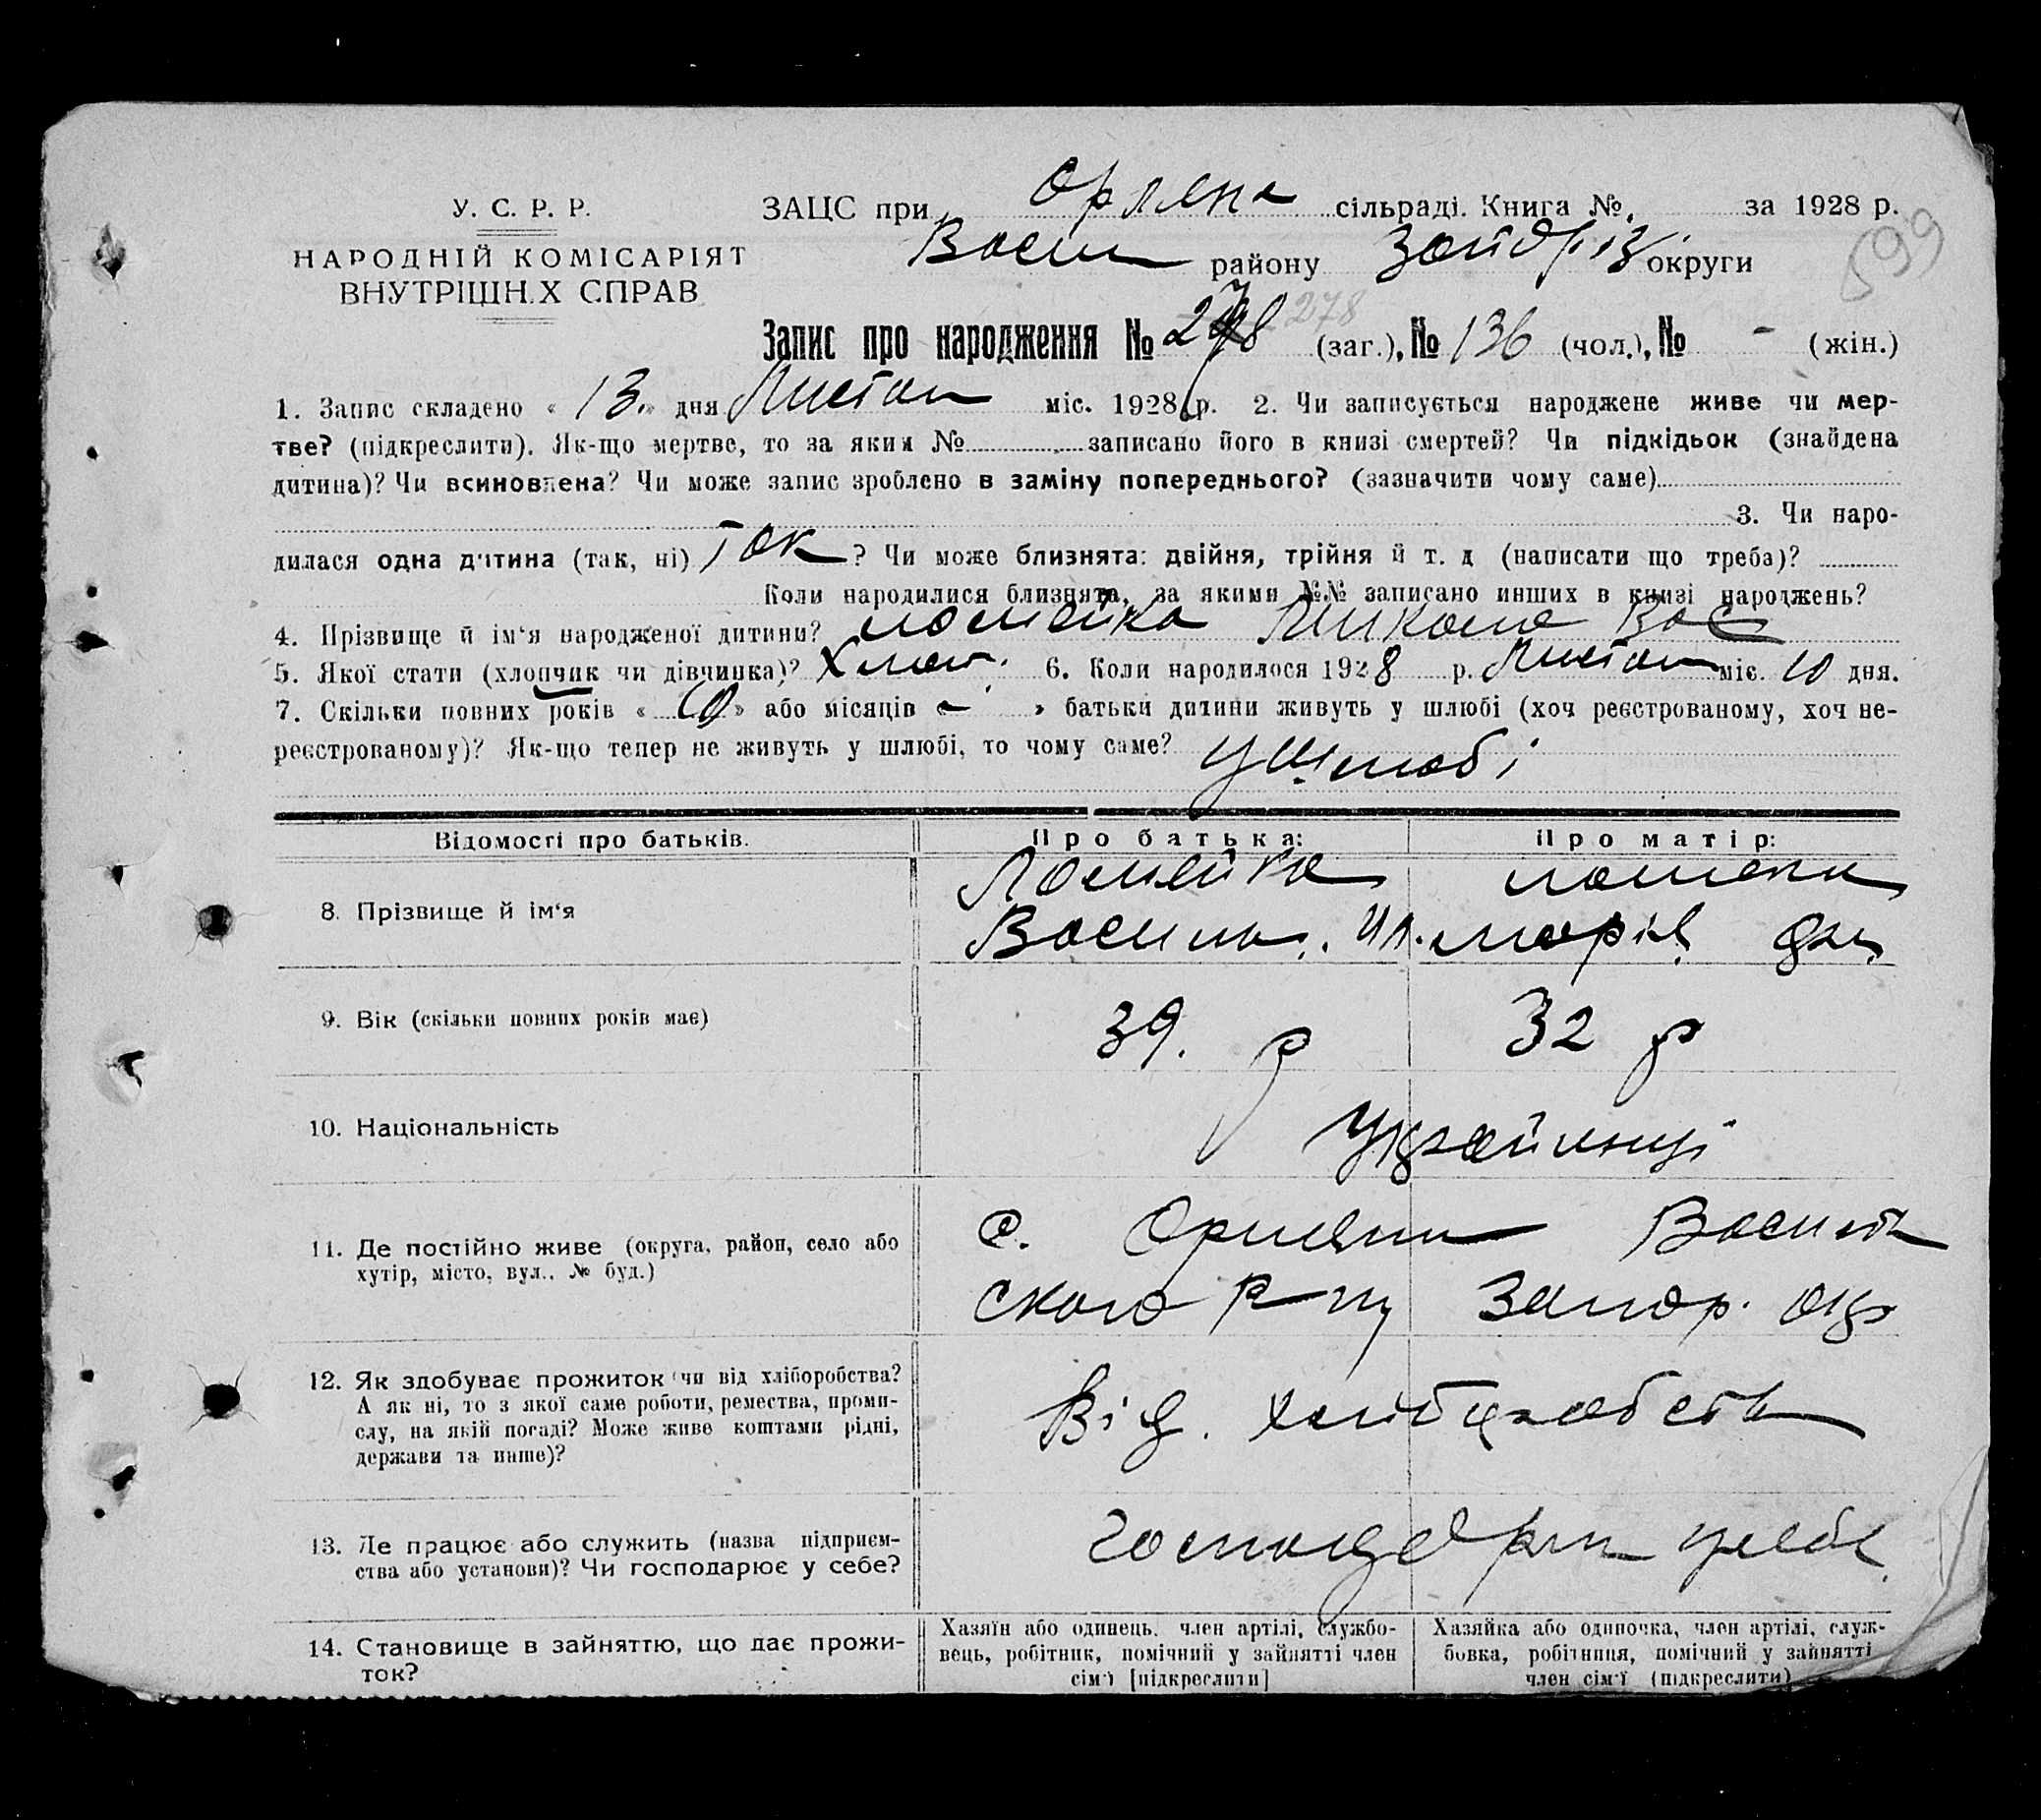 У. С. Р. Р.
НАРОДНІЙ КОМІСАРІЯТ
ВНУТРІШН.Х СПРАВ
ЗАЦС при Орляна сільраді. Книга №. за 1928 р.
Васил району округи
599
Запис про народження № 278 278 (заг.), № 136 (чол.), № - (жін.)
1. Запис складено « 13. » дня Листоп міс. 1928 р. 2. Чи записується народжене живе чи мер-
тве? (підкреслити). Як-що мертве, то за яким № записано його в книзі смертей? Чи підкідьок (знайдена
дитина)? Чи всиновлена? Чи може запис зроблено в заміну попереднього? (зазначити чому саме)
3. Чи наро-
дилася одна дитина (так, ні) Так ? Чи може близнята: двійня, трійня й т. д (написати що треба)?
Коли народилися близнята, за якими №№ записано инших в книзі народжень?
4. Прізвище й ім'я народженої дитини? Микола Вас
5. Якої стати (хлопчик чи дівчинка)? Хлоп. 6. Коли народилося 1928 р. Листоп міс. 10 дня.
7. Скільки повних років « 10 » або місяців « - » батьки дитини живуть у шлюбі (хоч реєстрованому, хоч не-
реєстрованому)? Як-що тепер не живуть у шлюбі, то чому саме? у шлюбі
Відомості про батьків. Про батька: Про матір:
8. Прізвище й ім'я
Василь Марія
9. Вік (скільки повних років має) 39. р 32 р
10. Національність Українці
11. Де постійно живе (округа, район, село або
хутір, місто, вул., № буд.)
с. Орляни Василів
ского р-ну Запор. окр
12. Як здобуває прожиток чи від хліборобства?
А як ні, то з якої саме роботи, ремества, проми-
слу, на якій посаді? Може живе коштами рідні,
держави та инше)?
Від. хліборобств
13. Де працює або служить (назва підприєм-
ства або установи)? Чи господарює у себе?
у себе
14. Становище в зайняттю, що дає прожи-
ток?
Хазяїн або одинець. член артілі, службо-
вець, робітник, помічний у зайнятті член
сім'ї [підкреслити]
Хазяйка або одиночка, член артілі, служ-
бовка, робітниця, помічний у зайнятті
член сім'ї (підкреслити)